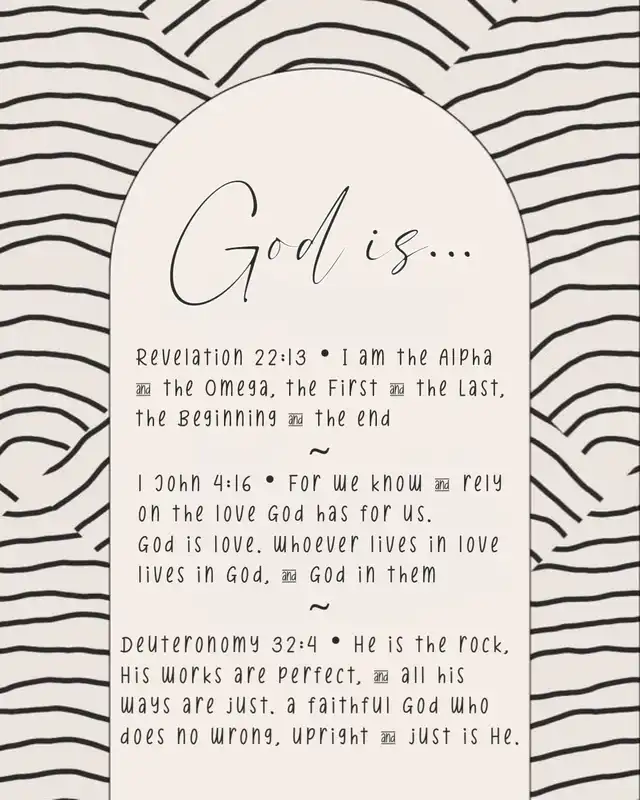 God is...
Revelation 22:13 • I am the Alpha
and the Omega, the First and the Last,
the Beginning and the end
~
1 John 4:16 • For we know and rely
on the love God has for us.
God is love. Whoever lives in love
lives in God, and God in them
~
Deuteronomy 32:4 • He is the rock,
His works are perfect, and all his
ways are just. a faithful God who
does no wrong, upright and just is He.